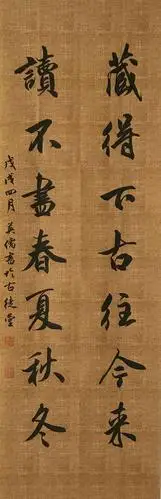 藏得下古往今来
讀不盡春夏秋冬
戊戌四月英儒書於古徒堂